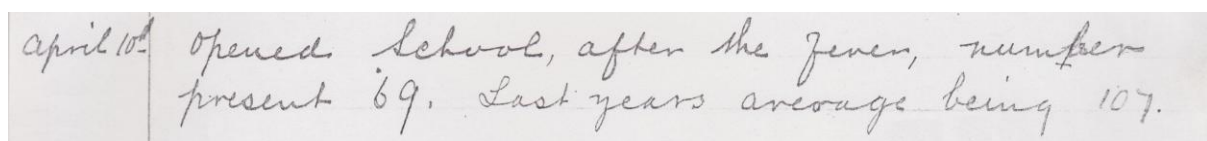 April 10th opened School, after the Fever, number
present 69. Last years average being 107.